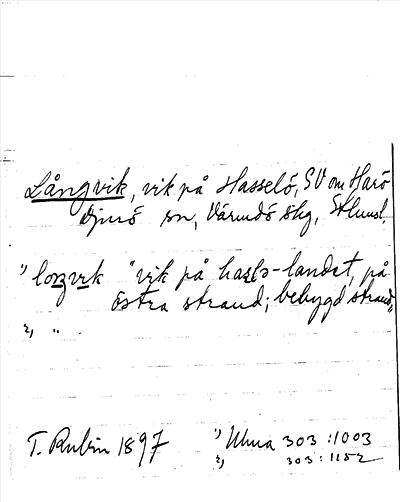 Långvik, vik på Hasselö, SV om Harö
Djurö sn, Värmdö skg, Sthlmsl.
¹⁾ loŋvik "vik på hasls-landet, på
östra strand; bebygd strand"
²⁾ " .
T. Rubin 1897 ¹⁾ Uma 303:1003
²⁾ 303:1152